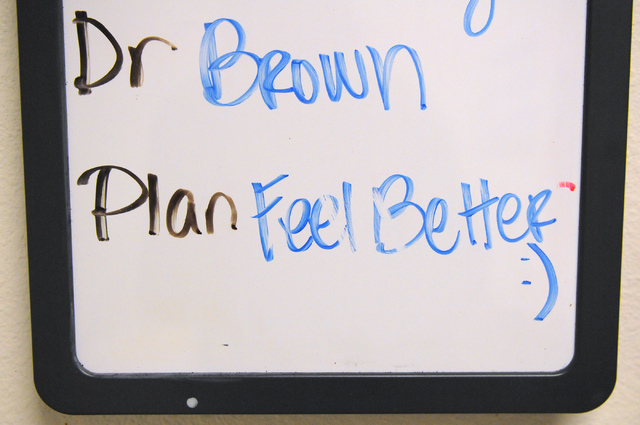 Dr Brown
Plan Feel Better
:)